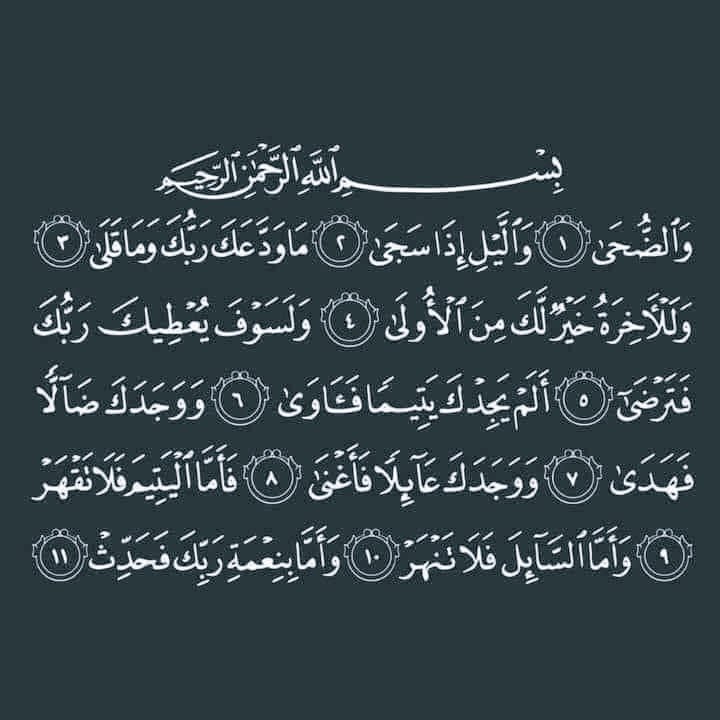 بِسْمِ ٱللَّهِ ٱلرَّحْمَٰنِ ٱلرَّحِيمِ
وَٱلضُّحَىٰ ١ وَٱلَّيْلِ إِذَا سَجَىٰ ٢ مَا وَدَّعَكَ رَبُّكَ وَمَا قَلَىٰ ٣
وَلَلْءَاخِرَةُ خَيْرٌ لَّكَ مِنَ ٱلْأُولَىٰ ٤ وَلَسَوْفَ يُعْطِيكَ رَبُّكَ
فَتَرْضَىٰٓ ٥ أَلَمْ يَجِدْكَ يَتِيمًا فَـَٔاوَىٰ ٦ وَوَجَدَكَ ضَآلًّا
فَهَدَىٰ ٧ وَوَجَدَكَ عَآئِلًا فَأَغْنَىٰ ٨ فَأَمَّا ٱلْيَتِيمَ فَلَا تَقْهَرْ
٩ وَأَمَّا ٱلسَّآئِلَ فَلَا تَنْهَرْ ١٠ وَأَمَّا بِنِعْمَةِ رَبِّكَ فَحَدِّثْ ١١